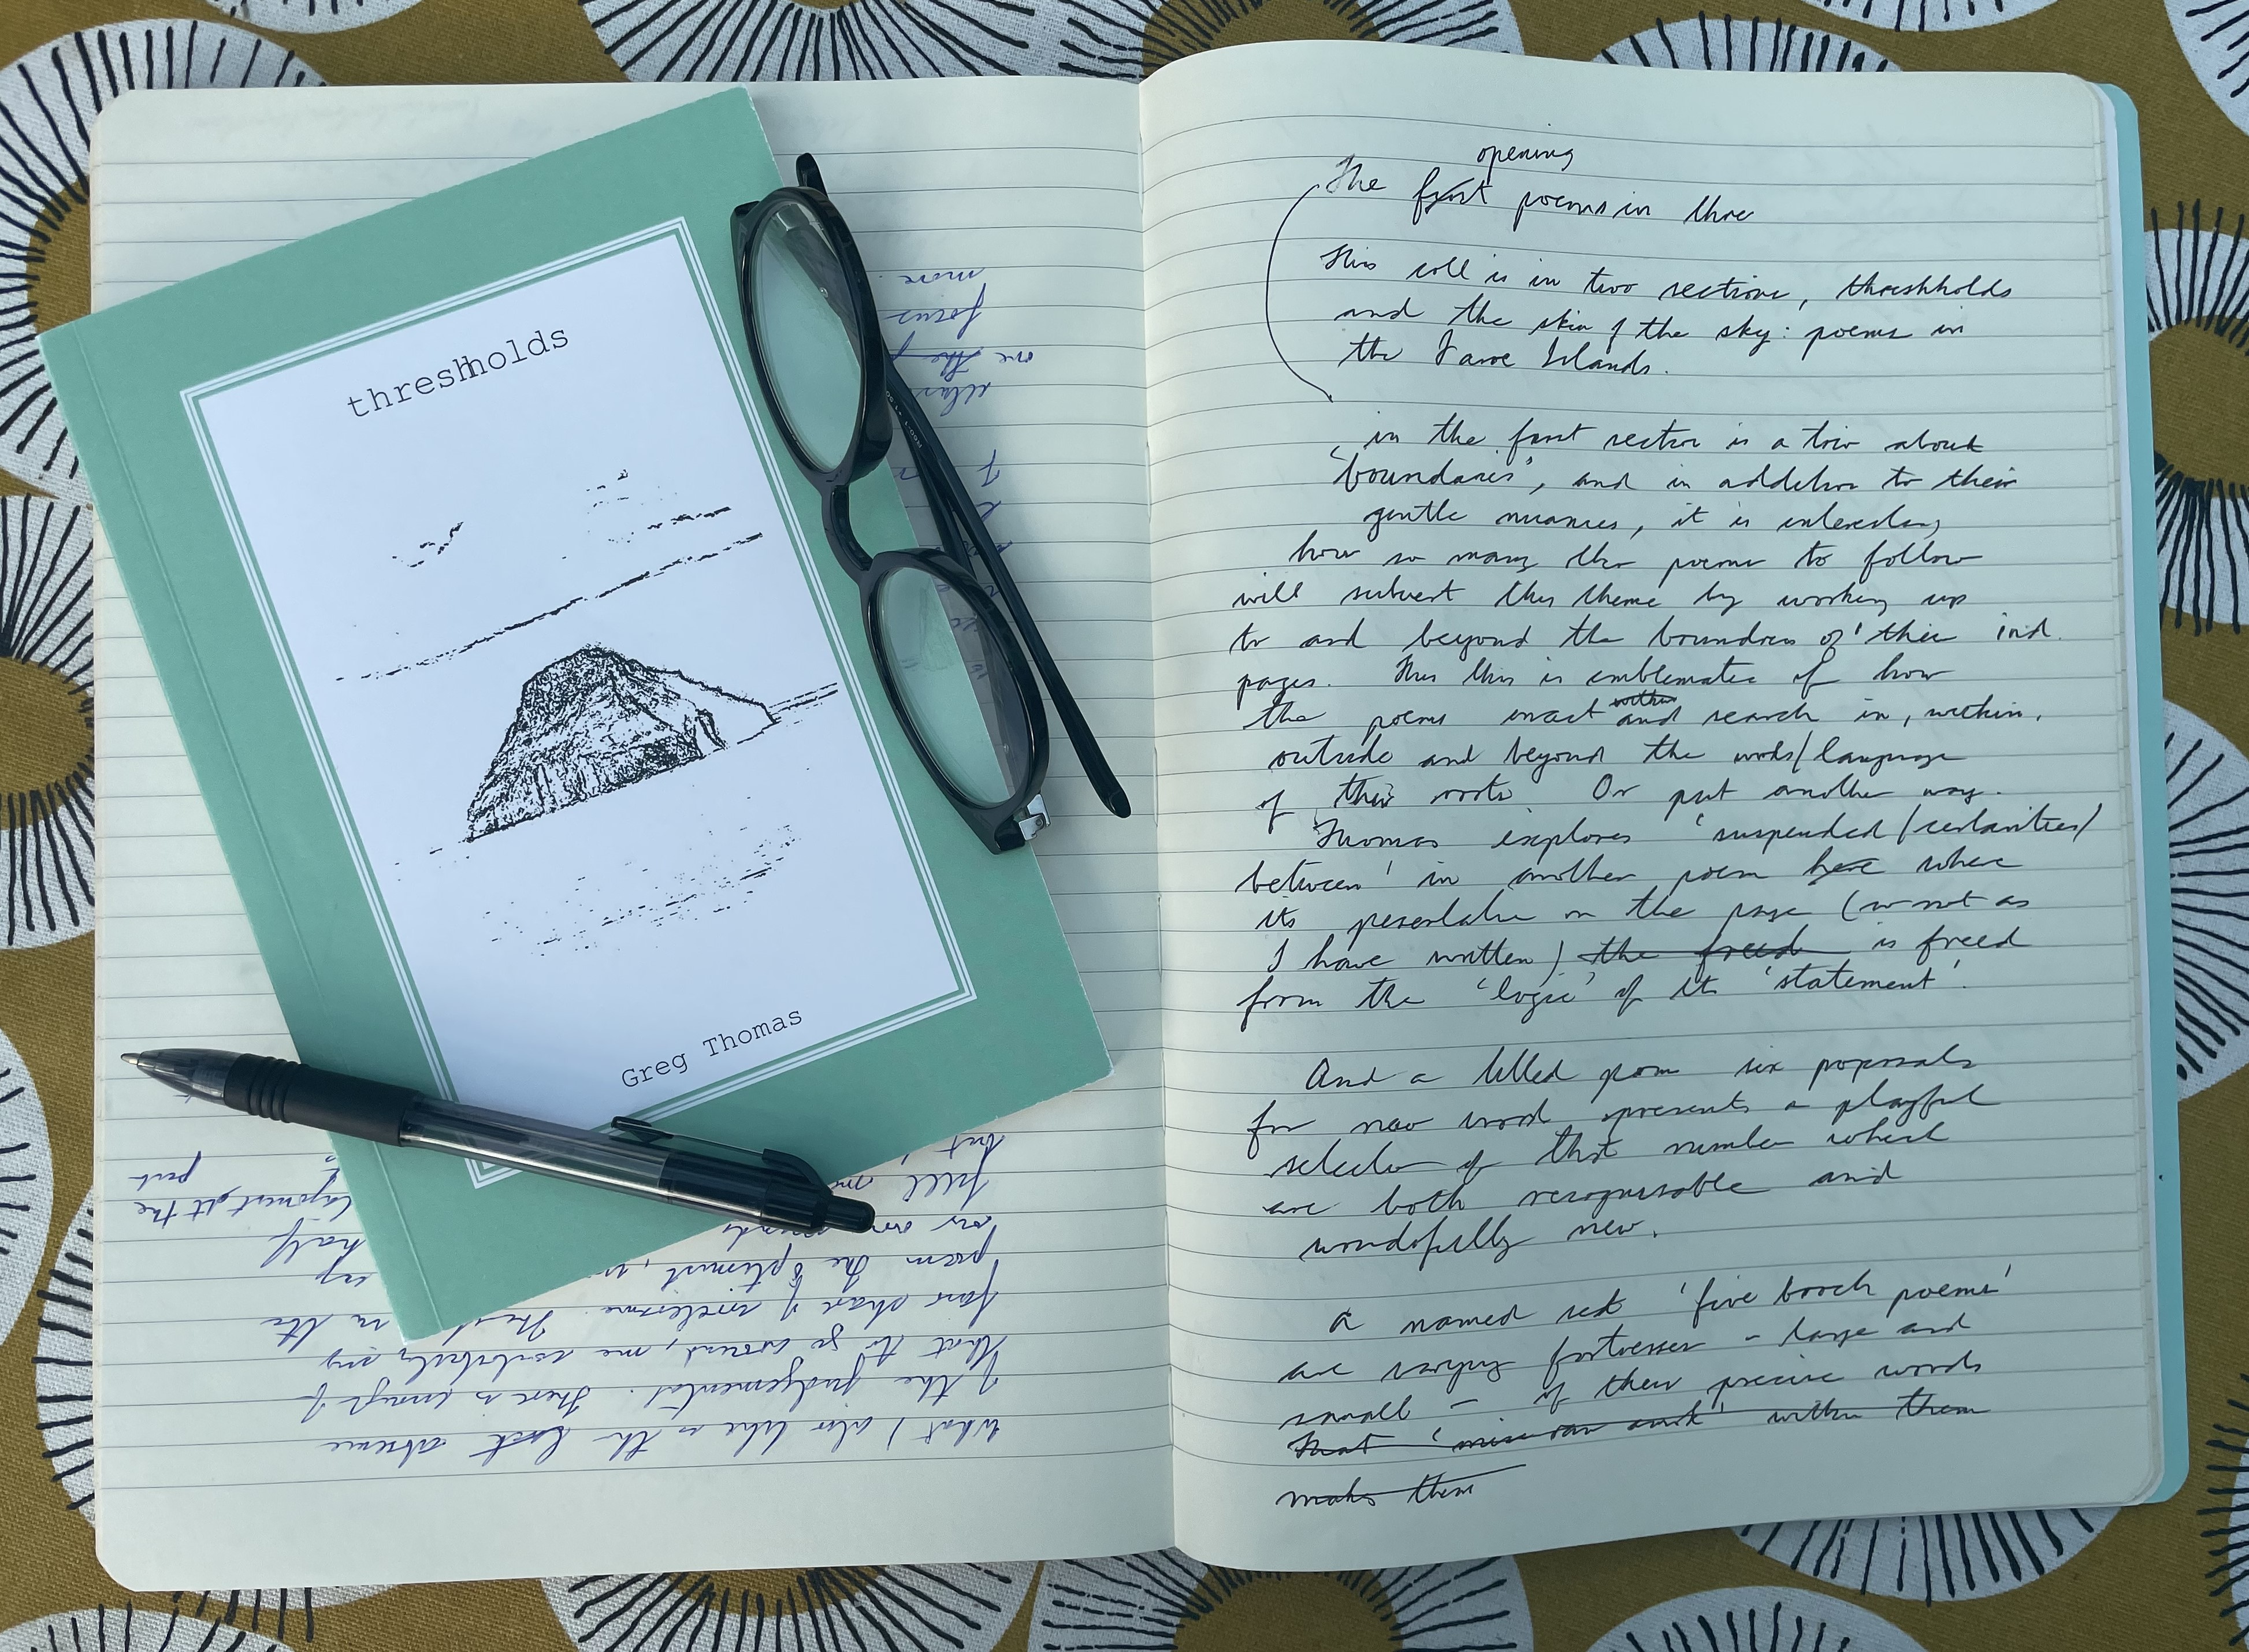 thresholds
Greg Thomas
more.
focus
on the
class
opening
The first poems in three
This coll is in two sections, threshholds
and the skin of the sky: poems in
the Faroe Islands.
in the first section is a trio about
'boundaries', and in addition to their
gentle nuances, it is interesting
how so many the poems to follow
will subvert this theme by working up
to and beyond the boundries of their ind.
pages. This this is emblematic of how
within
the poems enact and search in, within,
outside and beyond the words/language
of their roots. Or put another way.
Thomas explores 'suspended/certainties/
between' in another poem here where
its presentation on the page (so not as
I have written) the freed is freed
from the 'logic' of its 'statement'.
And a titled poem six proposals
for new word presents a playful
selection of that number which
are both recognisable and
wondofully new.
A named set 'five broch poems'
are varying fortresses - large and
small - of their precise words
That within them
makes them
What I also like is the lack absence
of the judgemental. There is enough of
that to go around, me contributing my
fair share of in the
poem The Optimist,
our own words half
fill me layout at the
but part